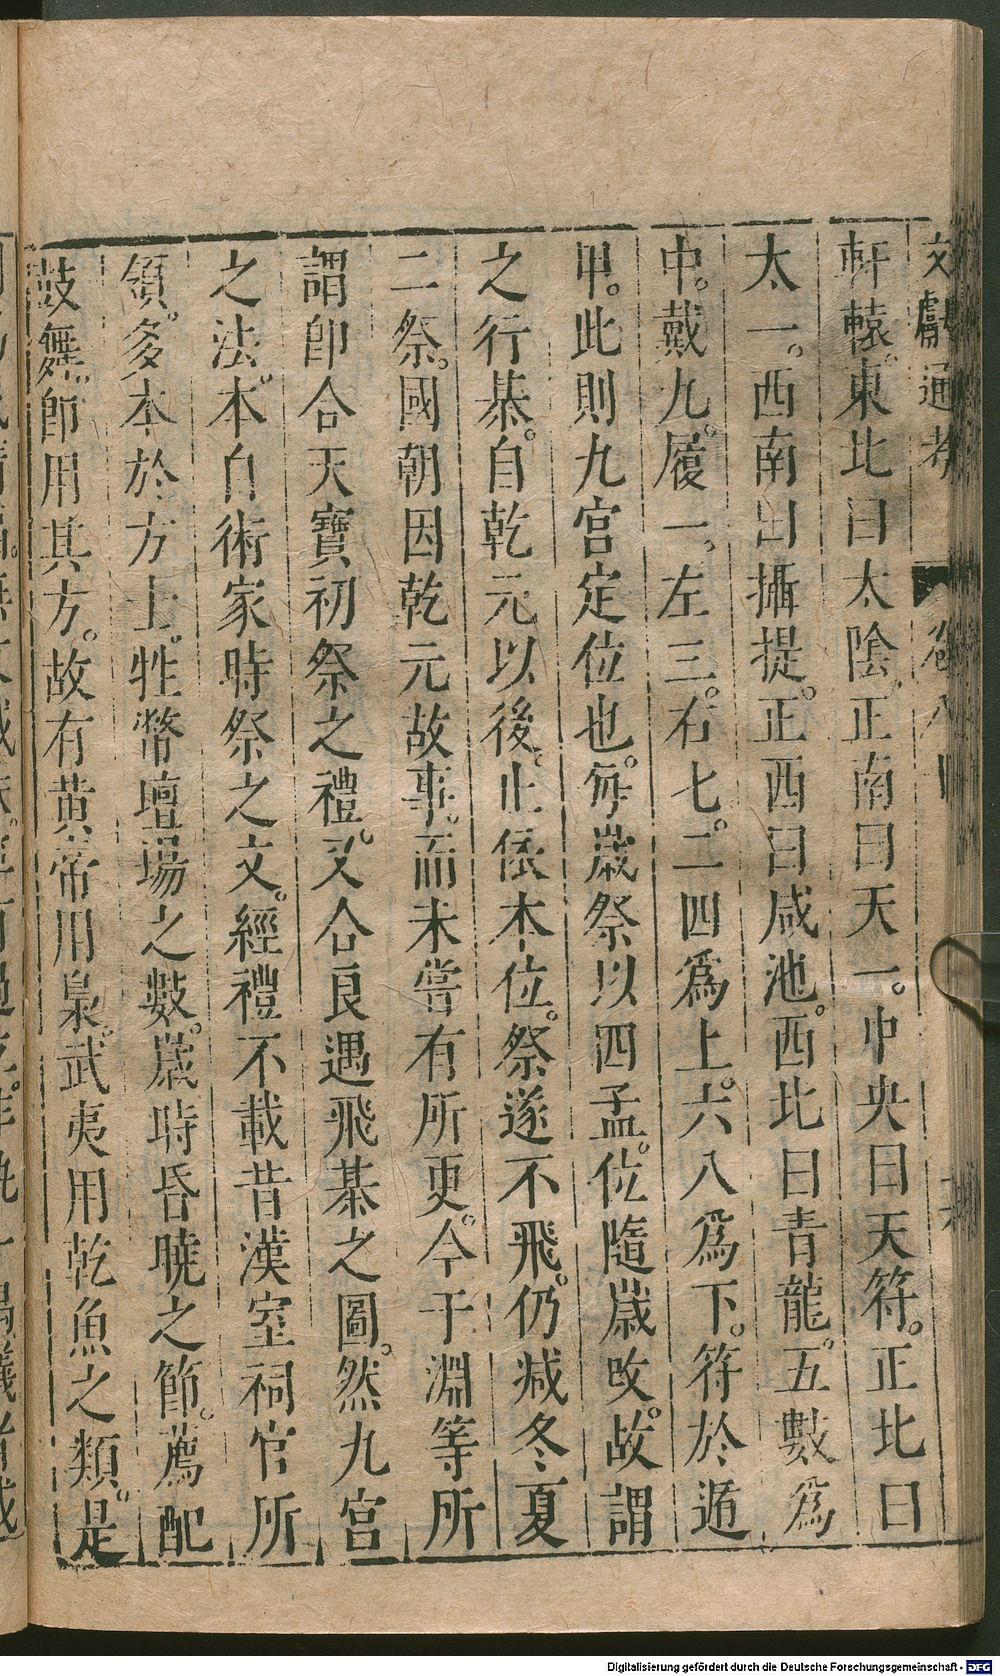 文獻通考 卷八十
軒轅。東北曰太陰正南曰天一。中央曰天符。正北曰
太一。西南曰攝提。正西曰咸池。西北曰青龍。五數爲
中。戴九。履一。左三。右七。二四爲上。六八爲下。符於遁
甲。此則九宮定位也。每歲祭以四孟。位隨歲改。故謂
之行棊。自乾元以後。止依本位。祭遂不飛。仍減冬夏
二祭。國朝因乾元故事。而未嘗有所更。今于淵等所
謂卽合天寶初祭之禮。又合良遇飛棊之圖。然九宮
之法。本自術家時祭之文。經禮不載昔漢室祠官所
領。多本於方士。牲幣壇場之數。歲時昏曉之節。薦配
鼓舞。卽用其方。故有黃帝用梟。武夷用乾魚之類。是
Digitalisierung gefördert durch die Deutsche Forschungsgemeinschaft - DFG